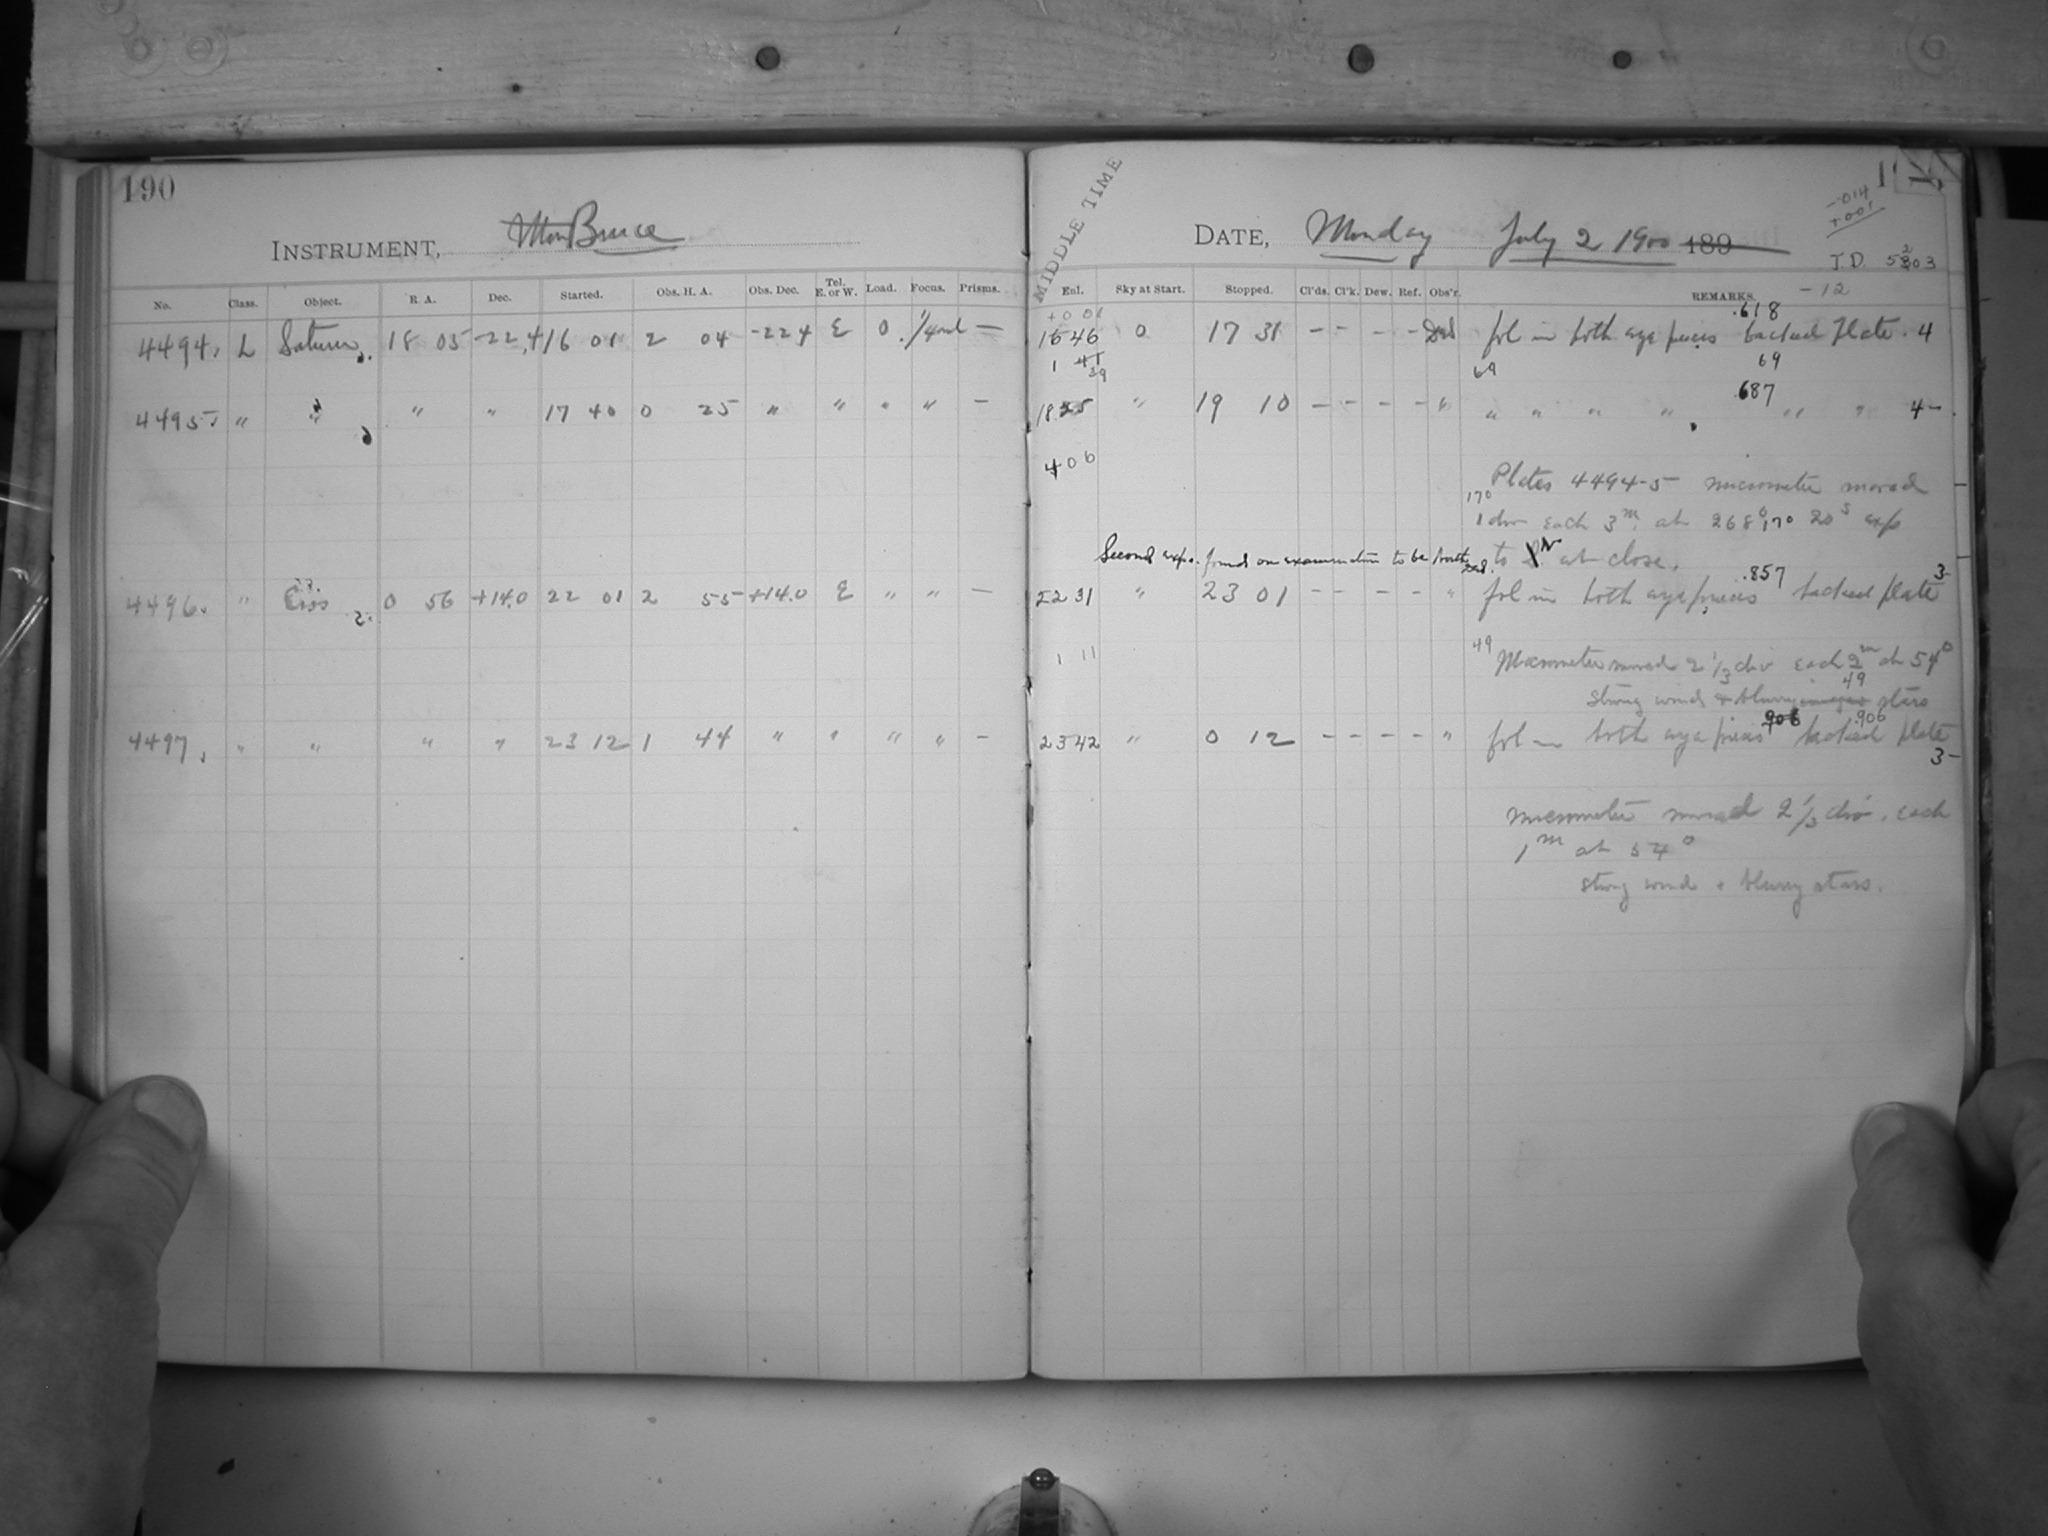 190
INSTRUMENT, Bruce
MIDDLE TIME
DATE, Monday July 2 1900 189
-.014
+.001
J.D. 5203
-12
No. Class. Object. R. A. Dec. Started. Obs. H. A. Obs. Dec. Tel. E. or W. Load. Focus. Prisms. Exl. Sky at Start. Stopped. Cl'ds. Cl'k. Dew. Ref. Obs'r. REMARKS.
+0 01
.618
4494. L Saturn 18 05 -22.4 16 01 2 04 -22 4 E 0 — 16 46 0 17 31 - - - - fol in both eye pieces backed plate. 4
69
69
.687
4495 " " " " 17 40 0 25 " " " " - 18 25 " 19 10 - - - - " " " " " " " 4-
4 06
Plates 4494-5 micrometer moved
170
1 div each 3m. at 268° 170 20s exp
Second expo. found on examination to be north
to N at close.
.857 3-
4496. " Eros 0 56 +14.0 22 01 2 55 +14.0 E " " — 22 31 " 23 01 - - - - " fol in both eye pieces backed plate
1 11
49 Micrometer moved 2 1/3 div each 2m at 54°
49
strong wind & blurry images stars
906 .906
4497. " " " " 23 12 1 44 " " " " - 23 42 " 0 12 - - - - " fol in both eye pieces backed plate
3-
micrometer moved 2 1/3 div. each
1m at 54°
strong wind & blurry stars.